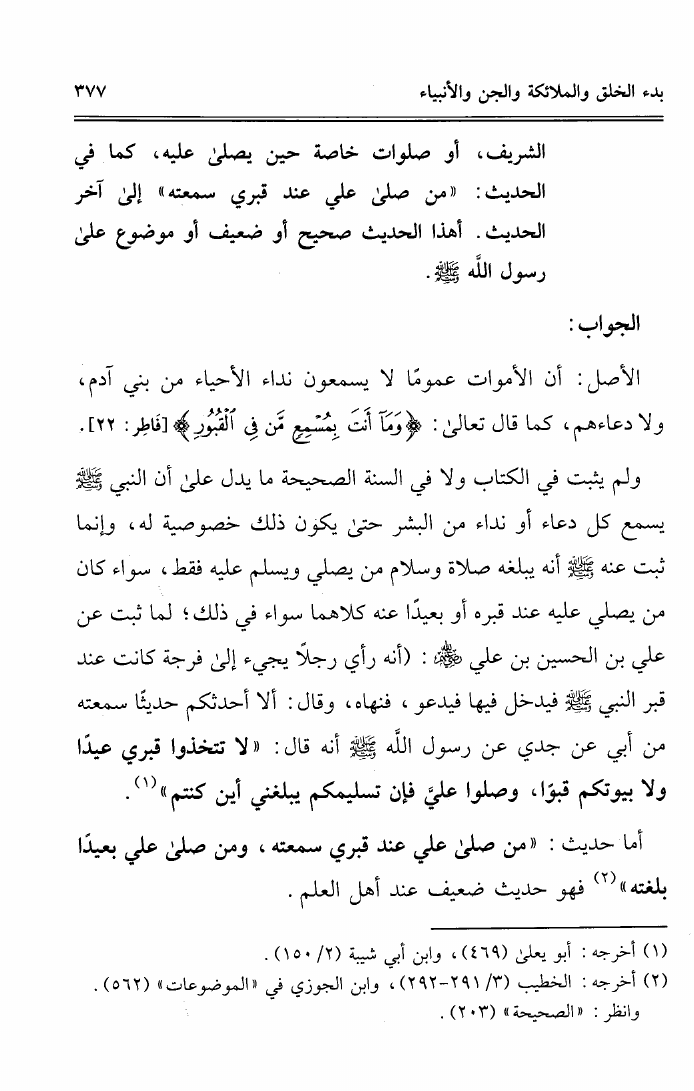 بدء الخلق والملائكة والجن والأنبياء ٣٧٧
الشريف، أو صلوات خاصة حين يصلىٰ عليه، كما في
الحديث: «من صلىٰ علي عند قبري سمعته» إلىٰ آخر
الحديث. أهذا الحديث صحيح أو ضعيف أو موضوع علىٰ
رسول اللَّه ﷺ.
الجواب:
الأصل: أن الأموات عمومًا لا يسمعون نداء الأحياء من بني آدم،
ولا دعاءهم، كما قال تعالىٰ: ﴿وَمَآ أَنتَ بِمُسۡمِعٖ مَّن فِي ٱلۡقُبُورِ﴾ [فَاطِر: ٢٢].
ولم يثبت في الكتاب ولا في السنة الصحيحة ما يدل علىٰ أن النبي ﷺ
يسمع كل دعاء أو نداء من البشر حتىٰ يكون ذلك خصوصية له، وإنما
ثبت عنه ﷺ أنه يبلغه صلاة وسلام من يصلي ويسلم عليه فقط، سواء كان
من يصلي عليه عند قبره أو بعيدًا عنه كلاهما سواء في ذلك؛ لما ثبت عن
علي بن الحسين بن علي : (أنه رأي رجلًا يجيء إلىٰ فرجة كانت عند
قبر النبي ﷺ فيدخل فيها فيدعو، فنهاه، وقال: ألا أحدثكم حديثًا سمعته
من أبي عن جدي عن رسول اللَّه ﷺ أنه قال: «لا تتخذوا قبري عيدًا
ولا بيوتكم قبوًا، وصلوا عليَّ فإن تسليمكم يبلغني أين كنتم»(١).
أما حديث: «من صلىٰ علي عند قبري سمعته، ومن صلىٰ علي بعيدًا
بلغته»(٢) فهو حديث ضعيف عند أهل العلم.
(١) أخرجه: أبو يعلىٰ (٤٦٩)، وابن أبي شيبة (٢/ ١٥٠).
(٢) أخرجه: الخطيب (٣/ ٢٩١-٢٩٢)، وابن الجوزي في «الموضوعات» (٥٦٢).
وانظر: «الصحيحة» (٢٠٣).